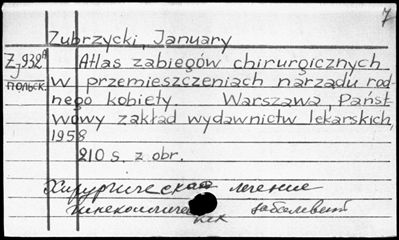 7
Zubrzycki, January
Z-932ᴬ Atlas zabiegów chirurgicznych
J w przemieszczeniach narządu rod-
польск. nego kobiety. Warszawa, Państ-
wowy zakład wydawnictw lekarskich,
1958
210 s. z obr.
Хирургическая лечение
гинекологиче заболеван